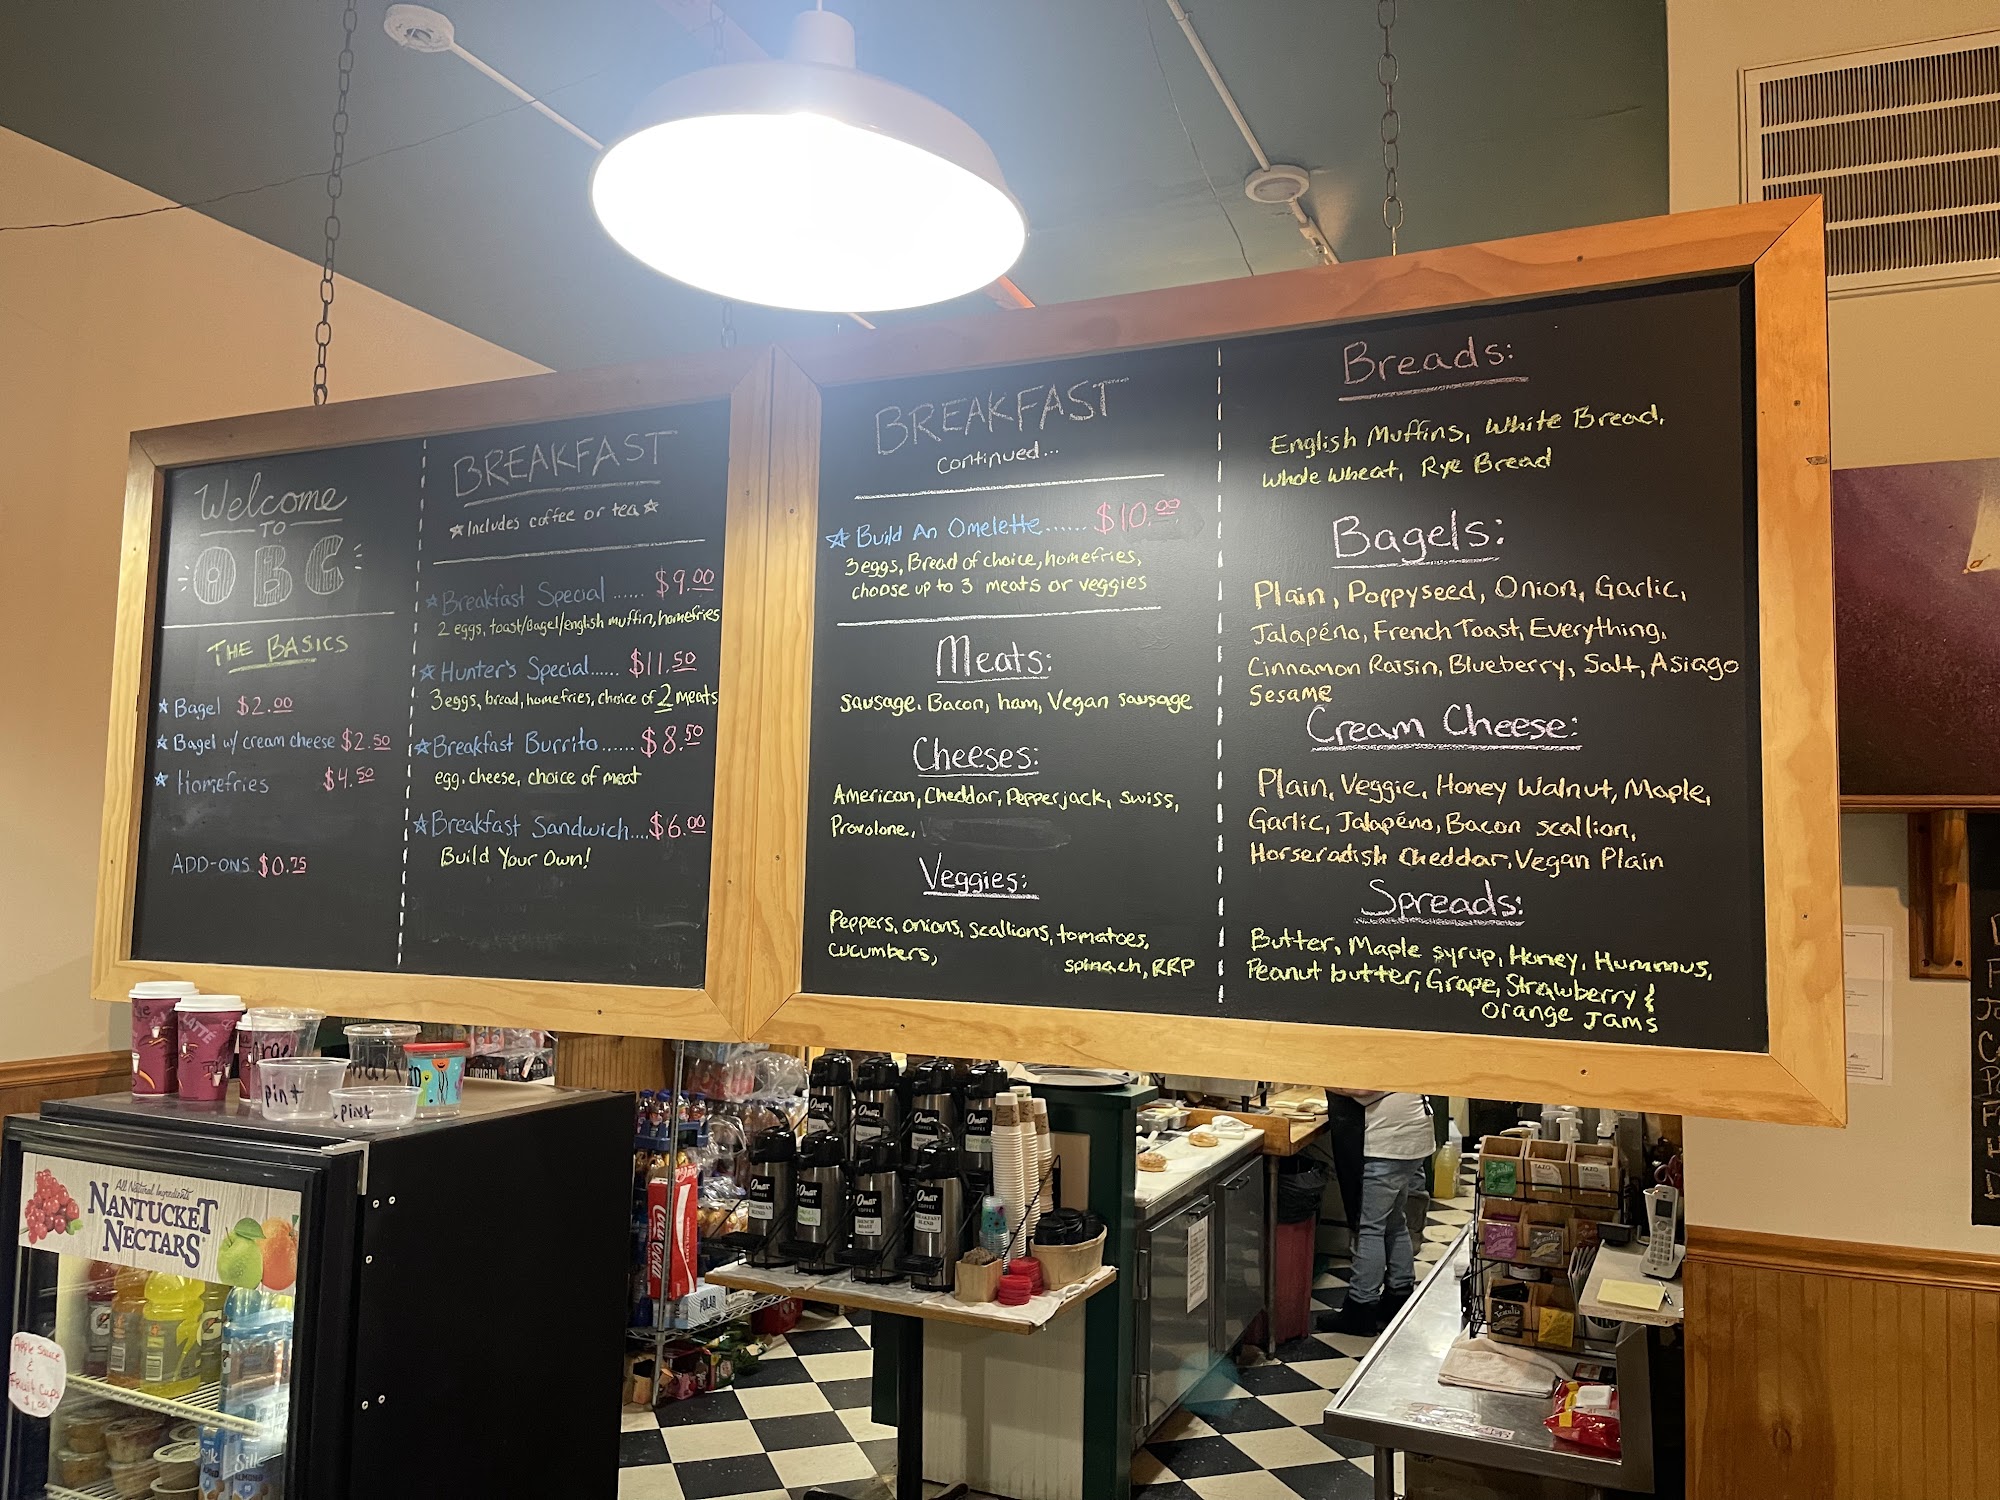 Welcome
TO
OBC
THE BASICS
☆ Bagel $2.00
☆ Bagel w/ cream cheese $2.50
☆ Homefries $4.50
ADD-ONS $0.75
BREAKFAST
☆ Includes coffee or tea ☆
☆ Breakfast Special ...... $9.00
2 eggs, toast/Bagel/english muffin, homefries
☆ Hunter's Special...... $11.50
3 eggs, bread, homefries, choice of 2 meats
☆ Breakfast Burrito...... $8.50
egg, cheese, choice of meat
☆ Breakfast Sandwich.... $6.00
Build Your Own!
BREAKFAST
Continued...
☆ Build An Omelette...... $10.00
3 eggs, Bread of choice, homefries,
choose up to 3 meats or veggies
Meats:
Sausage, Bacon, ham, Vegan sausage
Cheeses:
American, Cheddar, Pepperjack, Swiss,
Provolone,
Veggies:
Peppers, onions, scallions, tomatoes,
cucumbers,
spinach, RRP
Breads:
English Muffins, White Bread,
Whole Wheat, Rye Bread
Bagels:
Plain, Poppyseed, Onion, Garlic,
Jalapéno, French Toast, Everything,
Cinnamon Raisin, Blueberry, Salt, Asiago
Sesame
Cream Cheese:
Plain, Veggie, Honey Walnut, Maple,
Garlic, Jalapéno, Bacon scallion,
Horseradish Cheddar, Vegan Plain
Spreads:
Butter, Maple syrup, Honey, Hummus,
Peanut butter, Grape, Strawberry &
Orange Jams
LATTE
pint
pint
All Natural Ingredients
NANTUCKET
NECTARS
Apple Sauce
&
Fruit Cups
$1.00
Silk
Silk
ALMOND
Coca-Cola
POLAR
ORIGIN
Omar
COFFEE
Omar
COFFEE
Omar
COFFEE
BREAKFAST
BLEND
TAZO
TAZO